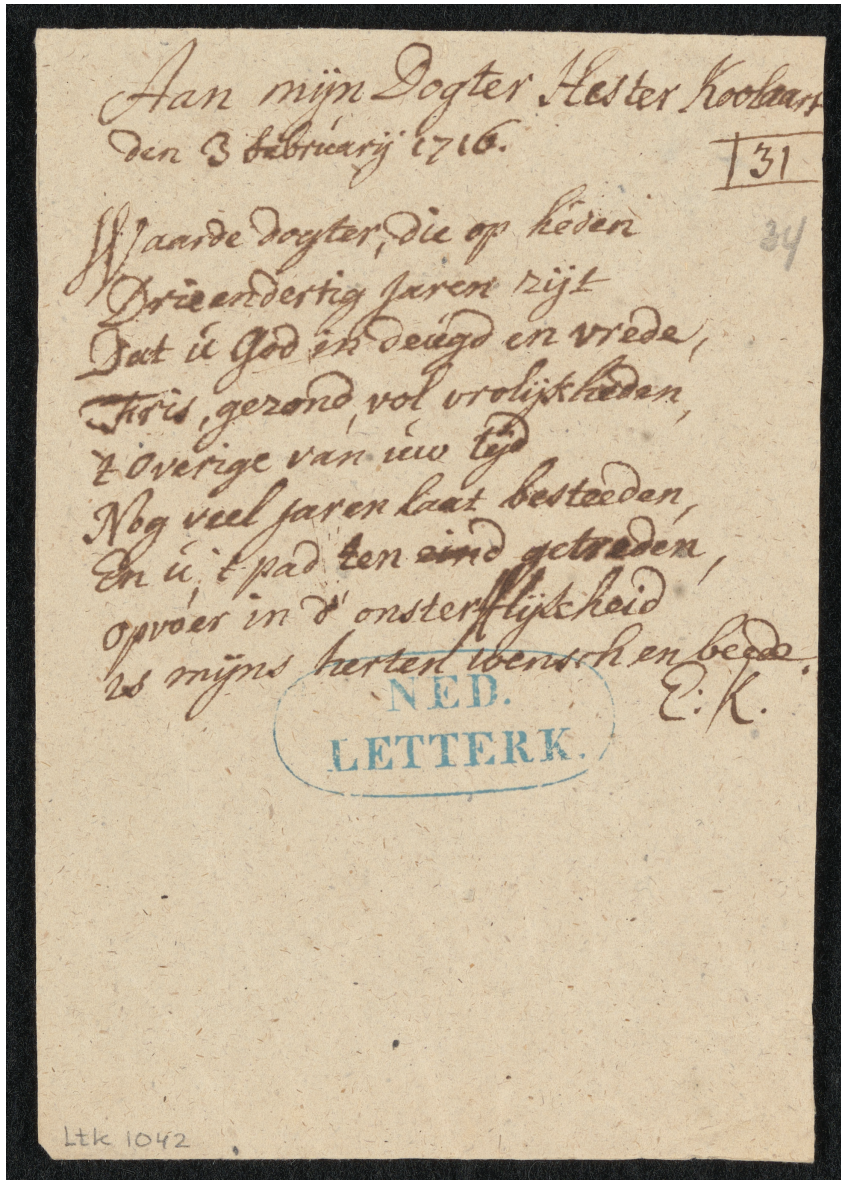 Aan mijn Dogter Hester Koolaart
den 3 februarij 1716.
31
34
Waarde dogter, die op heden
Drieendertig jaren zijt
Dat u God in deugd en vrede,
Fris, gezond, vol vrolijkheden,
't overige van uw tijd
Nog veel jaren laat besteeden,
En u, 't pad ten eind getreden,
opvoer in d' onsterflijkheid
is mijns herten wensch en beede.
E: K.
NED.
LETTERK.
Ltk 1042